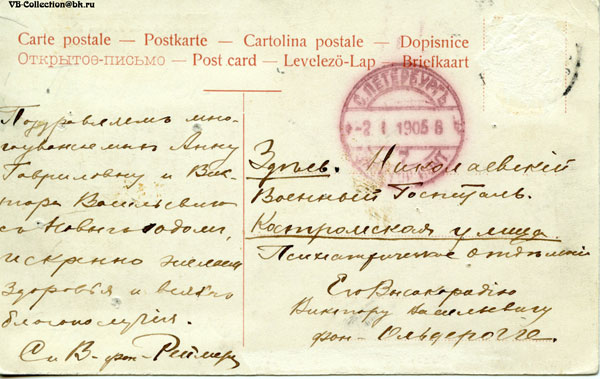 VB-Collection@bk.ru
Carte postale — Postkarte — Cartolina postale — Dopisnice
Открытое-письмо — Post card — Levelező-Lap — Briefkaart
С.ПЕТЕРБУРГЪ
-2 1 1905
Поздравляемъ мно-
гоуважаемыхъ Анну
Гавриловну и Вик-
тора Васильевича
съ Новымъ годомъ,
искренно желаемъ
здоровья и всякаго
благополучія.
С и В. фон-Реймеръ
Здѣсь. Николаевскій
Военный Госпиталь.
Костромская улица.
Психіатрическое отдѣленіе
Его Высокородію
Виктору Васильевичу
фон-Ольдерогге.